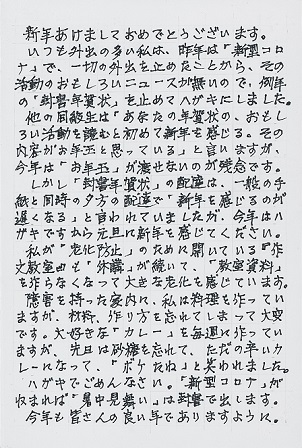 新年あけましておめでとうございます。
いつも外出の多い私は、昨年は「新型コロ
ナ」で、一切の外出を止めたことから、その
活動のおもしろいニュースが無いので、例年
の「封書年賀状」を止めてハガキにしました。
他の同級生は「あなたの年賀状の、おもし
ろい活動を読むと初めて新年を感じる。その
内容がお年玉と思っている」と言いますが、
今年は「お年玉」が渡せないのが残念です。
しかし「封書年賀状」の配達は、一般の手
紙と同時の夕方の配達で「新年を感じるのが
遅くなる」と言われていましたが、今年はハ
ガキですから元旦に新年を感じてください。
私が「老化防止」のために開いている『作
文教室』も「休講」が続いて、「教室資料」
を作らなくなって大きな老化を感じています。
障害を持った家内に、私は料理を作ってい
ますが、材料、作り方を忘れてしまって大変
です。大好きな「カレー」を毎週に作ってい
ますが、先日は砂糖を忘れて、ただの辛いカ
レーになって、「ボケたね」と笑われました。
ハガキでごめんなさい。「新型コロナ」が
収まれば「暑中見舞い」は封書で出します。
今年も皆さんの良い年でありますように。